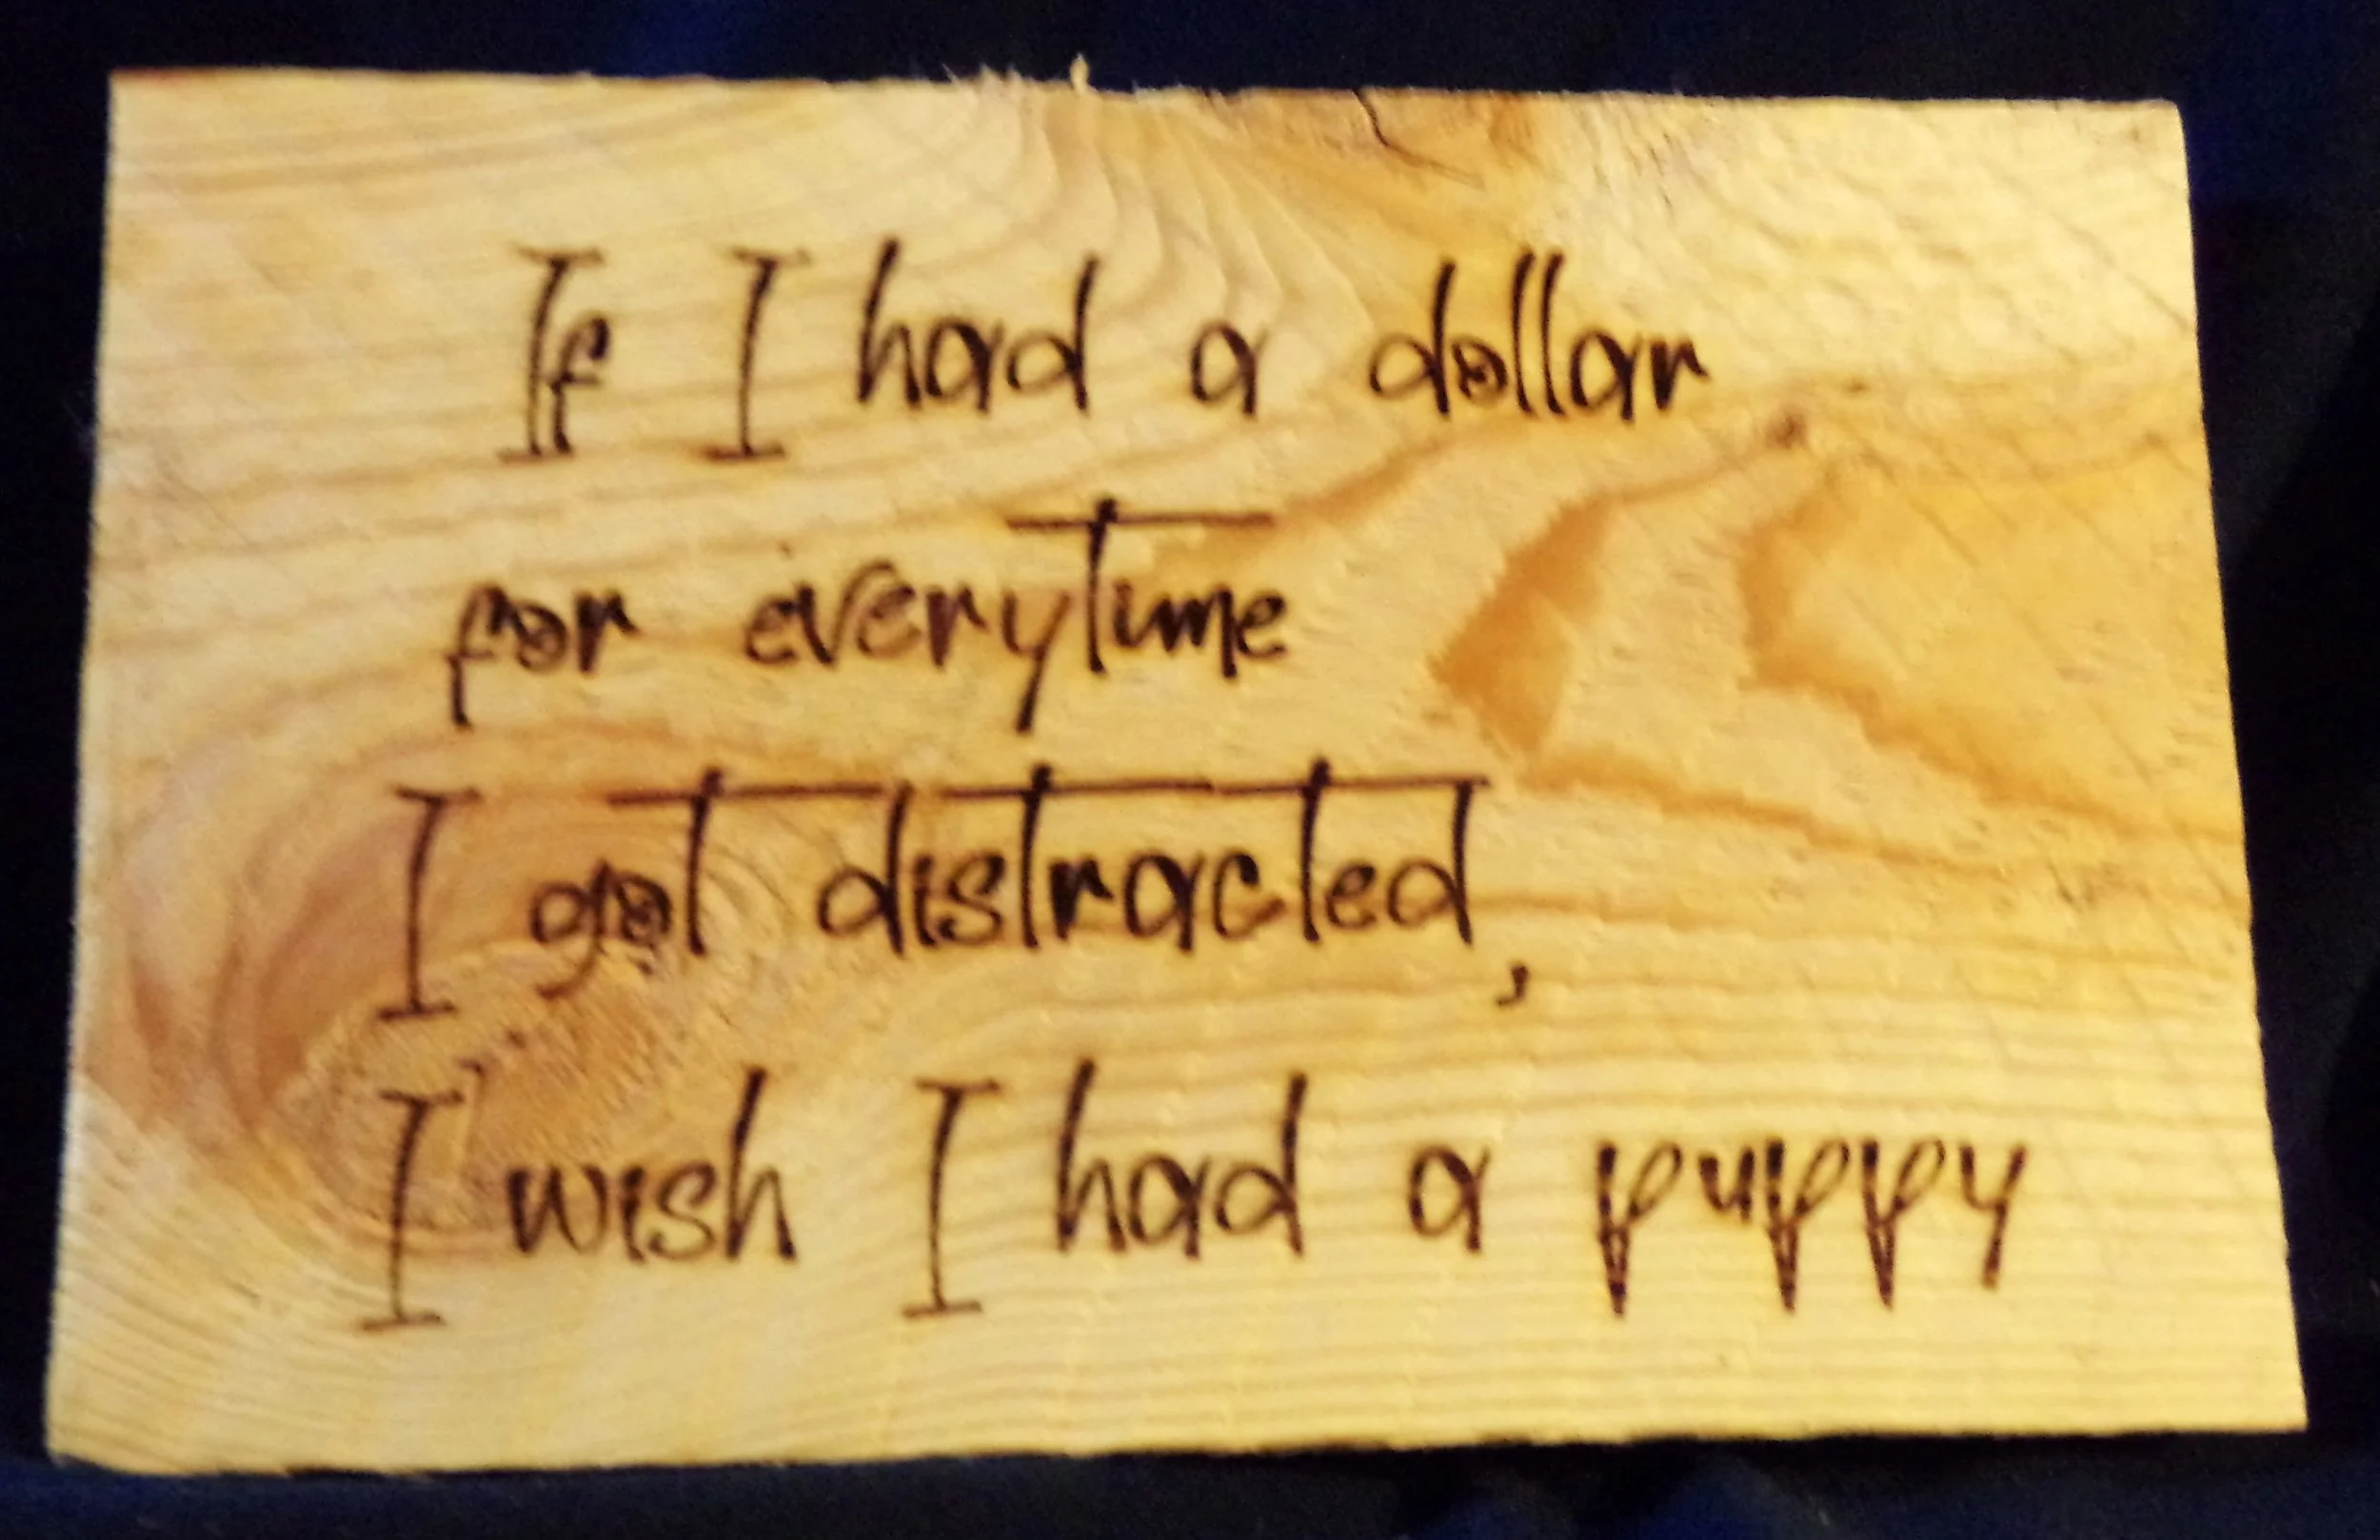 If I had a dollar
for everytime
I got distracted,
I wish I had a puppy